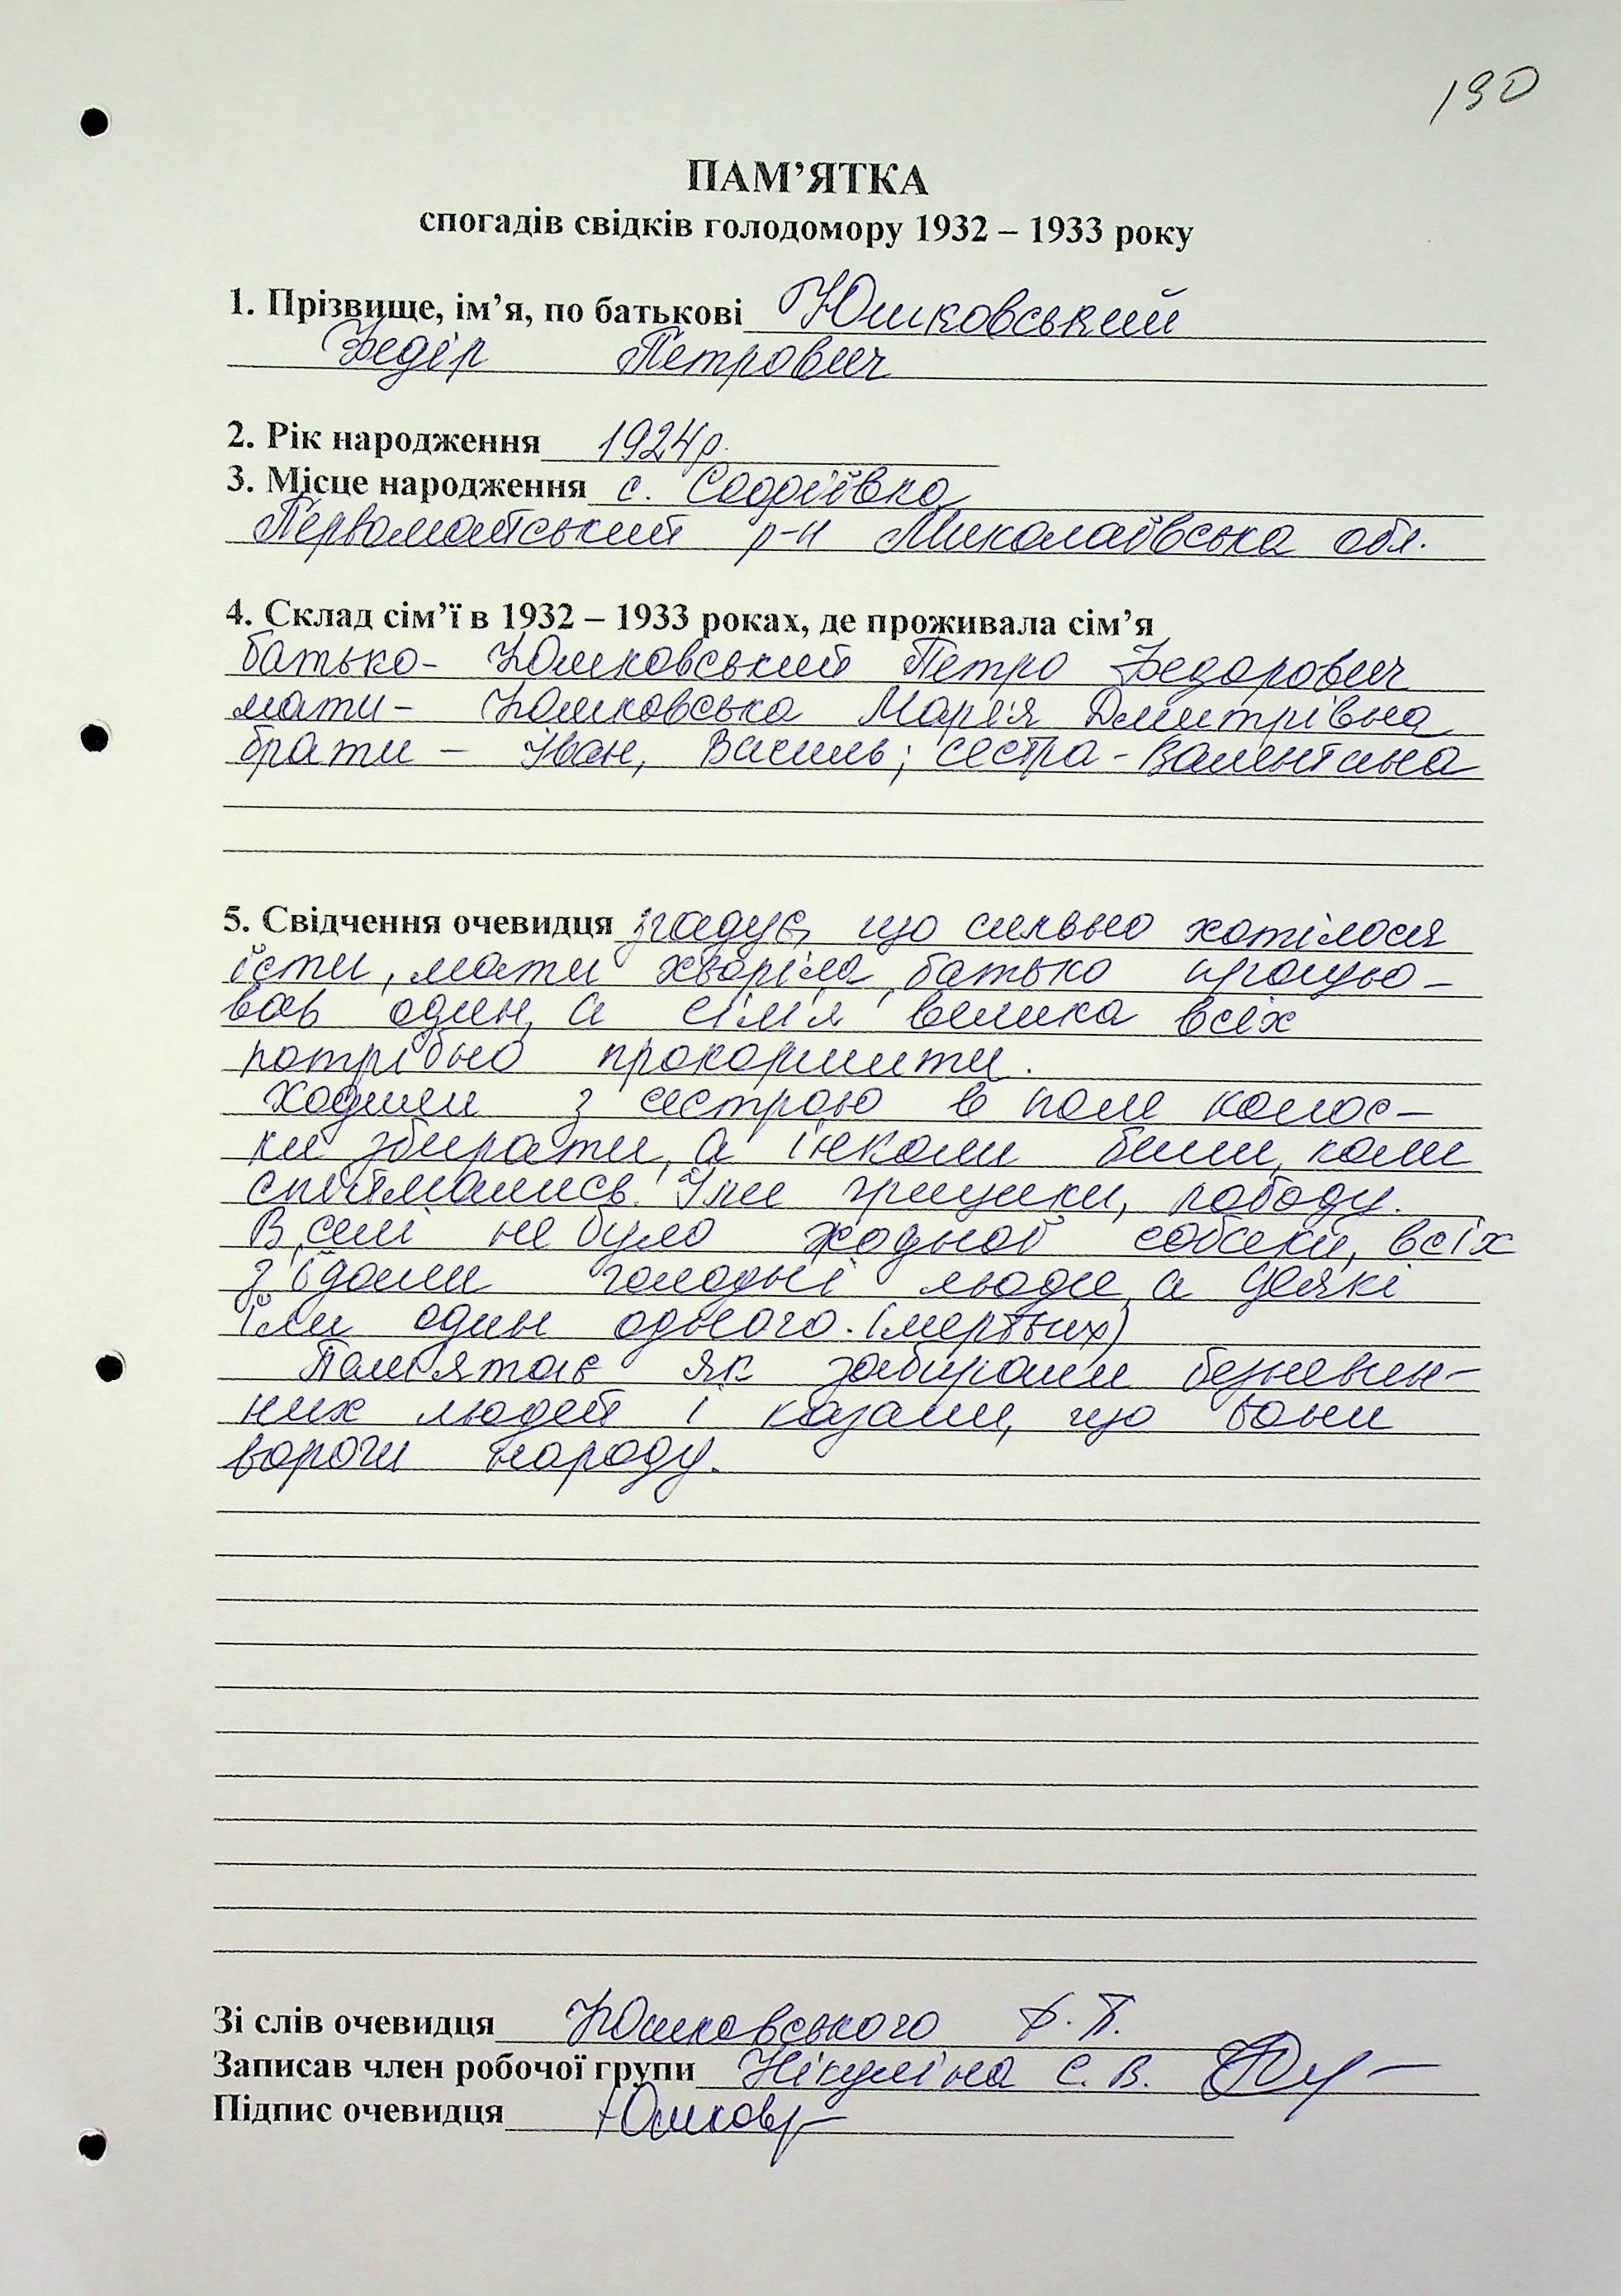 190
ПАМ’ЯТКА
спогадів свідків голодомору 1932 – 1933 року
1. Прізвище, ім’я, по батькові Юшковський
Федір Петрович
2. Рік народження 1924 р.
3. Місце народження с. Софіївка
Первомайський р-н Миколаївська обл.
4. Склад сім’ї в 1932 – 1933 роках, де проживала сім’я
батько- Юшковський Петро Федорович
мати- Юшковська Марія Дмитрівна
брати – Іван, Василь; сестра - Валентина
5. Свідчення очевидця згадує, що сильно хотілося
їсти, мати хворіла, батько працю-
вав один, а сім'я велика всіх
потрібно прокормити.
Ходили з сестрою в поле колос-
ки збирати, а інколи били, коли
спіймались. Їли грицики, лободу.
В селі не було жодної собаки, всіх
з'їдали голодні люди, а деякі
їли один одного. (мертвих)
Пам'ятає як забирали безневин-
них людей і казали, що вони
вороги народу.
Зі слів очевидця Юшковського Ф. П.
Записав член робочої групи Нікуліна С. В.
Підпис очевидця Юшков